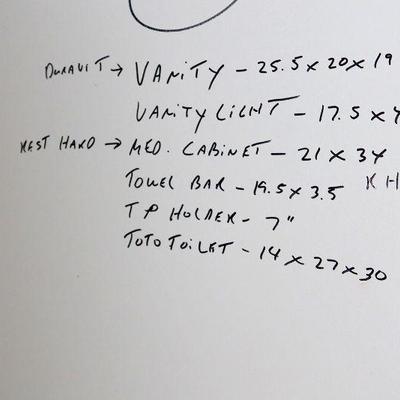 DURAVIT → VANITY - 25.5 x 20 x 19
VANITY LIGHT - 17.5 x 4
REST HARD → MED. CABINET - 21 x 34
TOWEL BAR - 19.5 x 3.5 KH
TP HOLDER - 7"
TOTO TOILET - 14 x 27 x 30